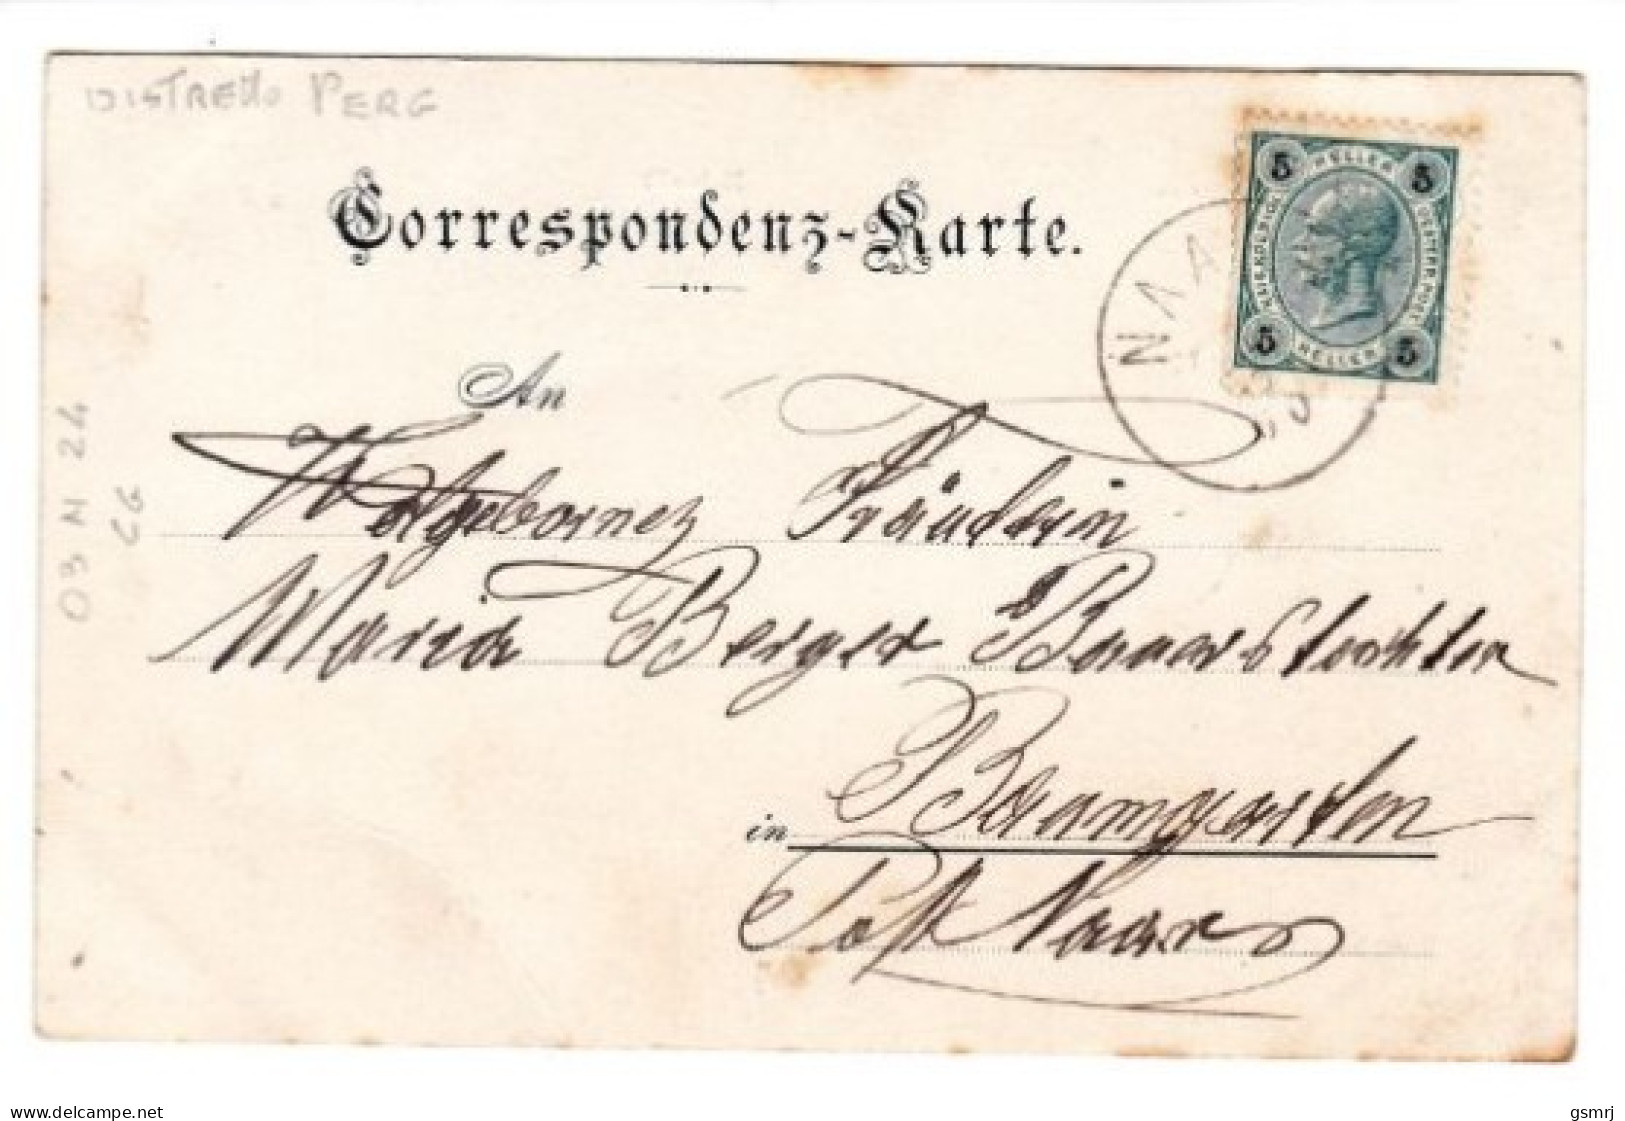 DISTRETTO PERG
Correspondenz-Karte.
5 HELLER 5
KAISERL. KOENIGL. OESTERR. POST
5 HELLER 5
NAA
An
Wolgebornes Fräulein
Maria Berger Bauerstochter
in Baumgarten
Post Naarn
03 N 24
CG
delcampe.net
gsmrj